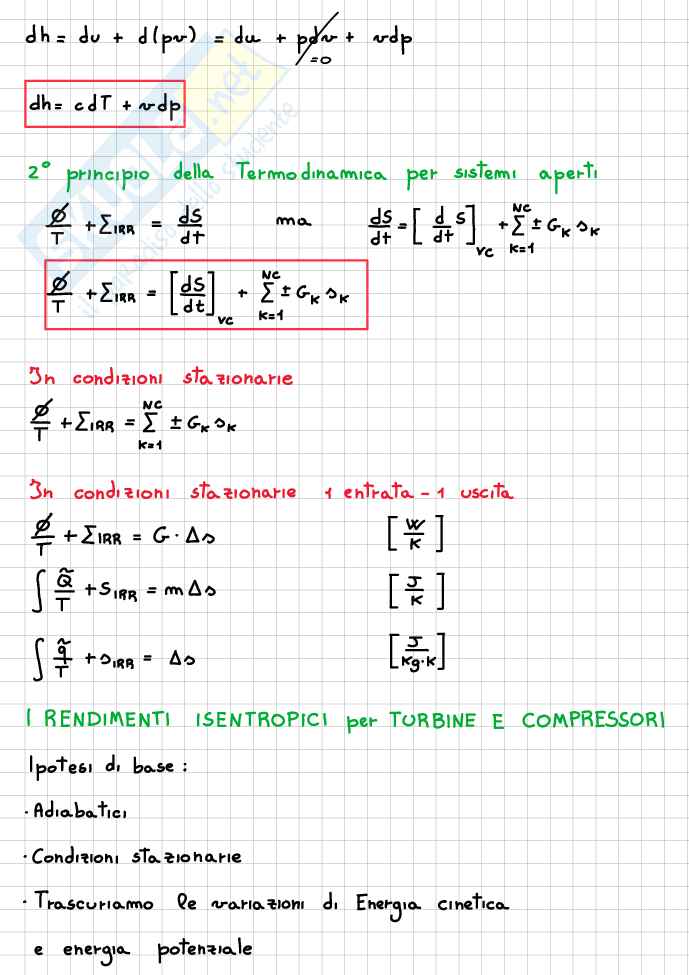 dh = du + d(pv) = du + pdv + vdp
=0
dh = cdT + vdp
2° principio della Termodinamica per sistemi aperti
Ø/T + Σ_IRR = dS/dt ma dS/dt = [d/dt S]_VC + Σ_{k=1}^{NC} ± G_k s_k
Ø/T + Σ_IRR = [dS/dt]_VC + Σ_{k=1}^{NC} ± G_k s_k
In condizioni stazionarie
Ø/T + Σ_IRR = Σ_{k=1}^{NC} ± G_k s_k
In condizioni stazionarie 1 entrata - 1 uscita
Ø/T + Σ_IRR = G · Δs [W/K]
∫ Q̃/T + S_IRR = m Δs [J/K]
∫ q̃/T + s_IRR = Δs [J/kg·K]
I RENDIMENTI ISENTROPICI per TURBINE E COMPRESSORI
Ipotesi di base :
· Adiabatici
· Condizioni stazionarie
· Trascuriamo le variazioni di Energia cinetica
e energia potenziale